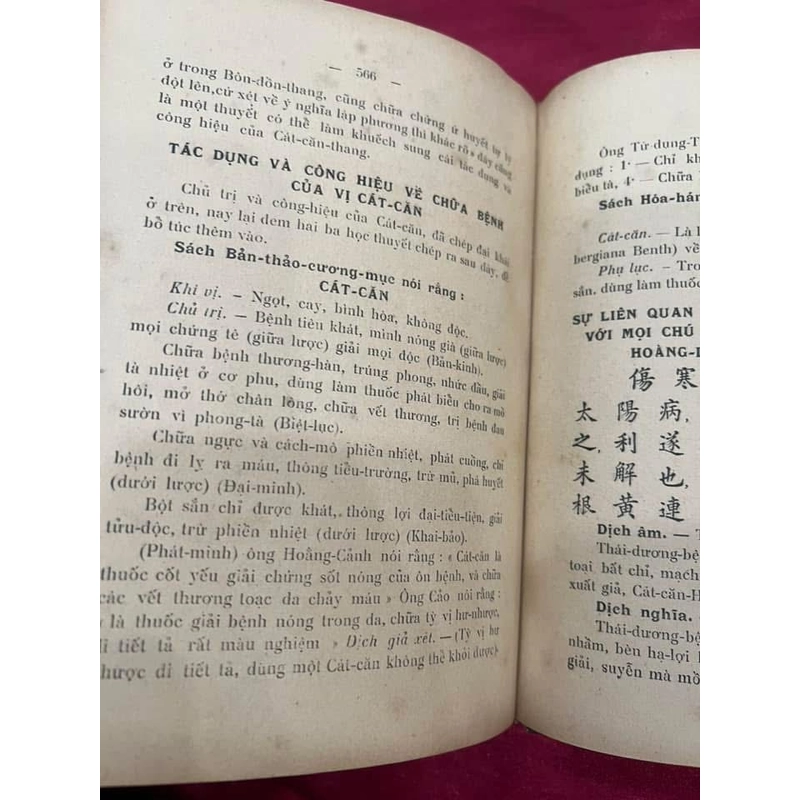 — 566 —
ở trong Bôn-đồn-thang, cũng chữa chứng ứ huyết tự ly
đột lên, cứ xét về ý nghĩa lập phương thì khác rõ » đây cũng
là một thuyết có thể làm khuếch sung cái tác dụng và
công hiệu của Cát-căn-thang.
TÁC DỤNG VÀ CÔNG HIỆU VỀ CHỮA BỆNH
CỦA VỊ CÁT-CĂN
Chủ trị và công-hiệu của Cát-căn, đã chép đại khái
ở trên, nay lại đem hai ba học thuyết chép ra sau đây, để
bổ túc thêm vào.
Sách Bản-thảo-cương-mục nói rằng :
CÁT-CĂN
Khí vị. — Ngọt, cay, bình hòa, không độc.
Chủ trị. — Bệnh tiêu khát, mình nóng già (giữa lược)
mọi chứng tê (giữa lược) giải mọi độc (Bản-kinh).
Chữa bệnh thương-hàn, trúng phong, nhức đầu, giải
tà nhiệt ở cơ phu, dùng làm thuốc phát biểu cho ra mồ
hôi, mở thớ chân lông, chữa vết thương, trị bệnh đau
sườn vì phong-tà (Biệt-lục).
Chữa ngực và cách-mô phiền nhiệt, phát cuồng, chỉ
bệnh đi lỵ ra máu, thông tiểu-trường, trừ mủ, phá huyết
(dưới lược) (Đại-minh).
Bột sắn chỉ được khát, thông lợi đại-tiểu-tiện, giải
tửu-độc, trừ phiền nhiệt (dưới lược) (Khai-bảo).
(Phát-minh) ông Hoằng-Cảnh nói rằng : « Cát-căn là
thuốc cốt yếu giải chứng sốt nóng của ôn bệnh, và chữa
các vết thương toạc da chảy máu » Ông Cảo nói rằng :
là thuốc giải bệnh nóng trong da, chữa tỳ vị hư-nhược,
đi tiết tả rất màu nghiệm » Dịch giả xét. — (Tỳ vị hư
nhược đi tiết tả, dùng một Cát-căn không thể khỏi được)
Ông Từ dung-T
dụng : 1· — Chỉ kh
biểu tà, 4· — Chữa
Sách Hòa-hán
Cát-căn. — Là l
bergiana Benth) về
Phụ lục. — Tro
sắn, dùng làm thuốc
SỰ LIÊN QUAN
VỚI MỌI CHÚ
HOÀNG-L
傷 寒
太 陽 病,
之, 利 遂
未 解 也,
根 黃 連
Dịch âm. — T
Thái-dương-bệ
toại bất chỉ, mạch
xuất giả, Cát-căn-H
Dịch nghĩa.
Thái-dương-bệ
nhầm, bèn hạ-lợi
giải, suyễn mà mồ